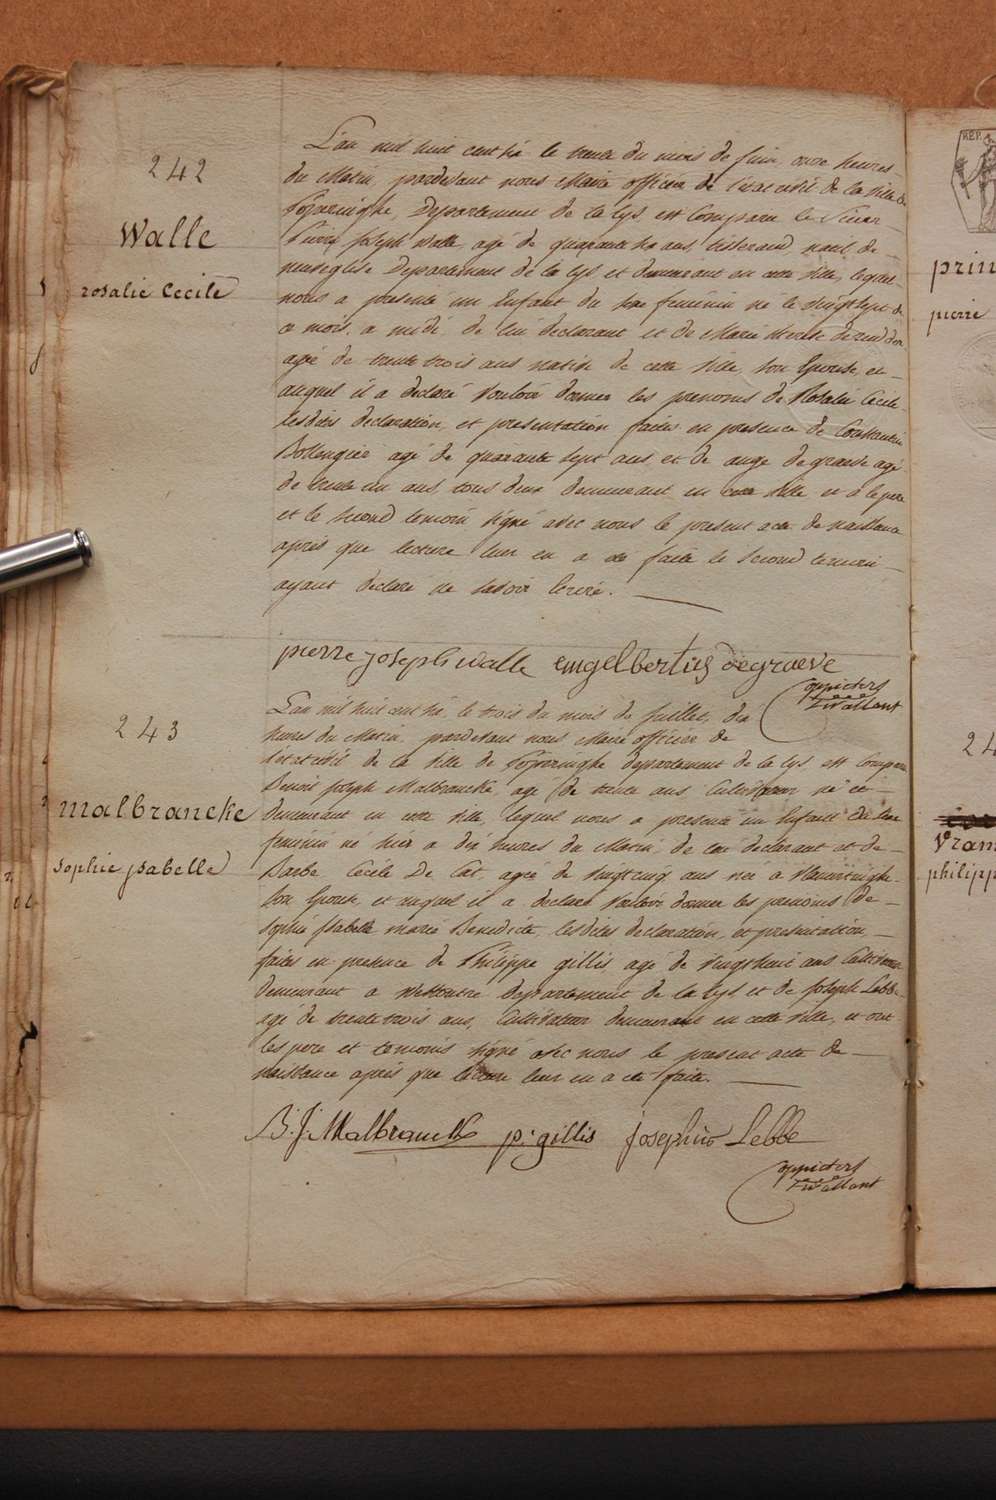 242
Walle
rosalie Cecile
L'an mil huit cent six le trente du mois de Juin, onze heures
du Matin, pardevant nous Maire officier de l'etat civil de la ville de
Poperinghe, Departement de la Lys, est Comparu le Sieur
Pierre Joseph Walle, agé de quarante six ans, tisserand, natif de
neuveglise Departement de la Lys et demeurant en cette ville, lequel
nous a presenté un Enfant du sexe feminin né le vingt sept de
ce mois, a midi de lui declarant et de Marie therese
agée de trente trois ans native de cette ville, son Epouse, et
auquel il a declaré vouloir donner les prenoms de Rosalie Cecile
lesdites declaration, et presentation faites en presence de Constantin
Bollengier agé de quarante sept ans, et de ange degraeve agé
de trente un ans, tous deux demeurant en cette ville et a le pere
et le second temoin signé avec nous le present acte de naissance
après que lecture leur en a été faite le second temoin
ayant declaré ne savoir Ecrire.
pierre joseph walle engelbertus degraeve
243
malbrancke
Sophie ysabelle
L'an mil huit cent six, le trois du mois de Juillet, dix
heures du Matin, pardevant nous Maire officier de
l'etat civil de la ville de Poperinghe departement de la Lys est Comparu
Benoit Joseph Malbrancke, agé de trente ans Cultivateur né et
demeurant en cette ville, lequel nous a presenté un Enfant du sexe
feminin né hier a dix heures du Matin, de lui declarant et de
Barbe Cecile De Cat, agée de vingt cinq ans née a
son Epouse, et auquel il a declaré vouloir donner les prenoms de
Sophie Isabelle marie Benedicte, lesdites declaration, et presentation
faites en presence de Philippe gillis agé de vingt huit ans Cultivateur
demeurant a Westoutre departement de la Lys et de Joseph Lebbe
agé de trente trois ans, Cultivateur demeurans en cette ville, et ont
les pere et temoins signé avec nous le present acte de
naissance après que lecture leur en a été faite.
B: J: Malbrancke p: gillis josephus Lebbe
prin
pierre
24
Vram
philipp